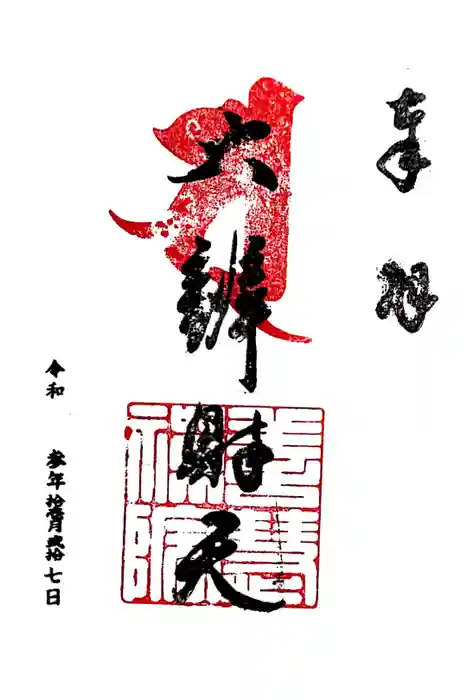 奉拝
大辨財天
禅院
令和 参年拾壹月弐拾七日